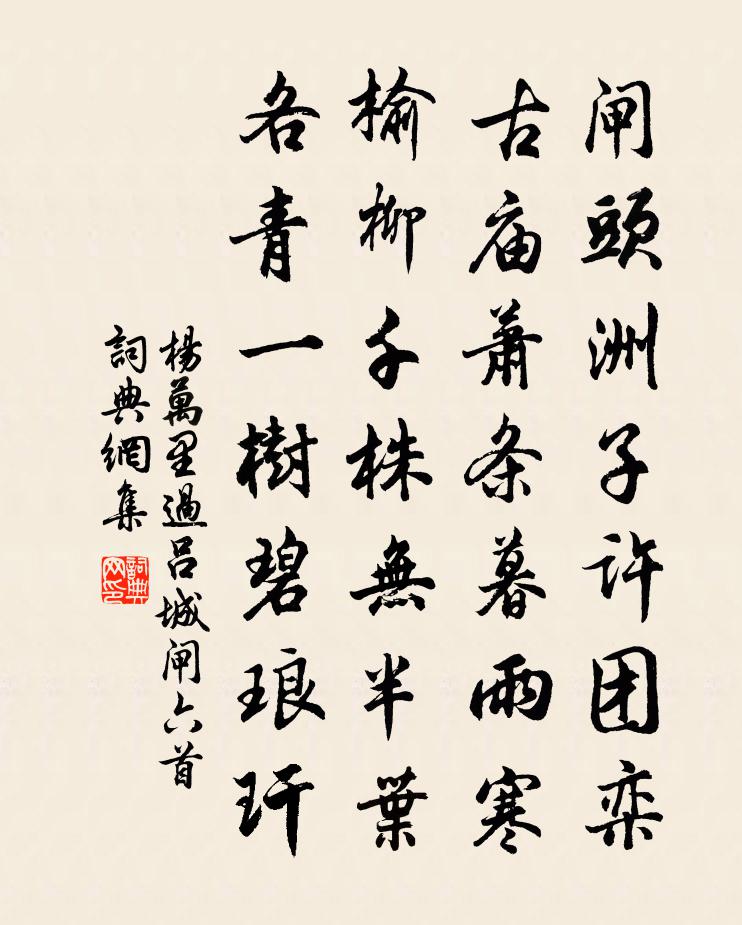 闸頭洲子許团栾
古庙蕭条暮雨寒
榆柳千株無半葉
各青一樹碧琅玕
楊萬里過吕城闸六首
詞典網集
詞典网印